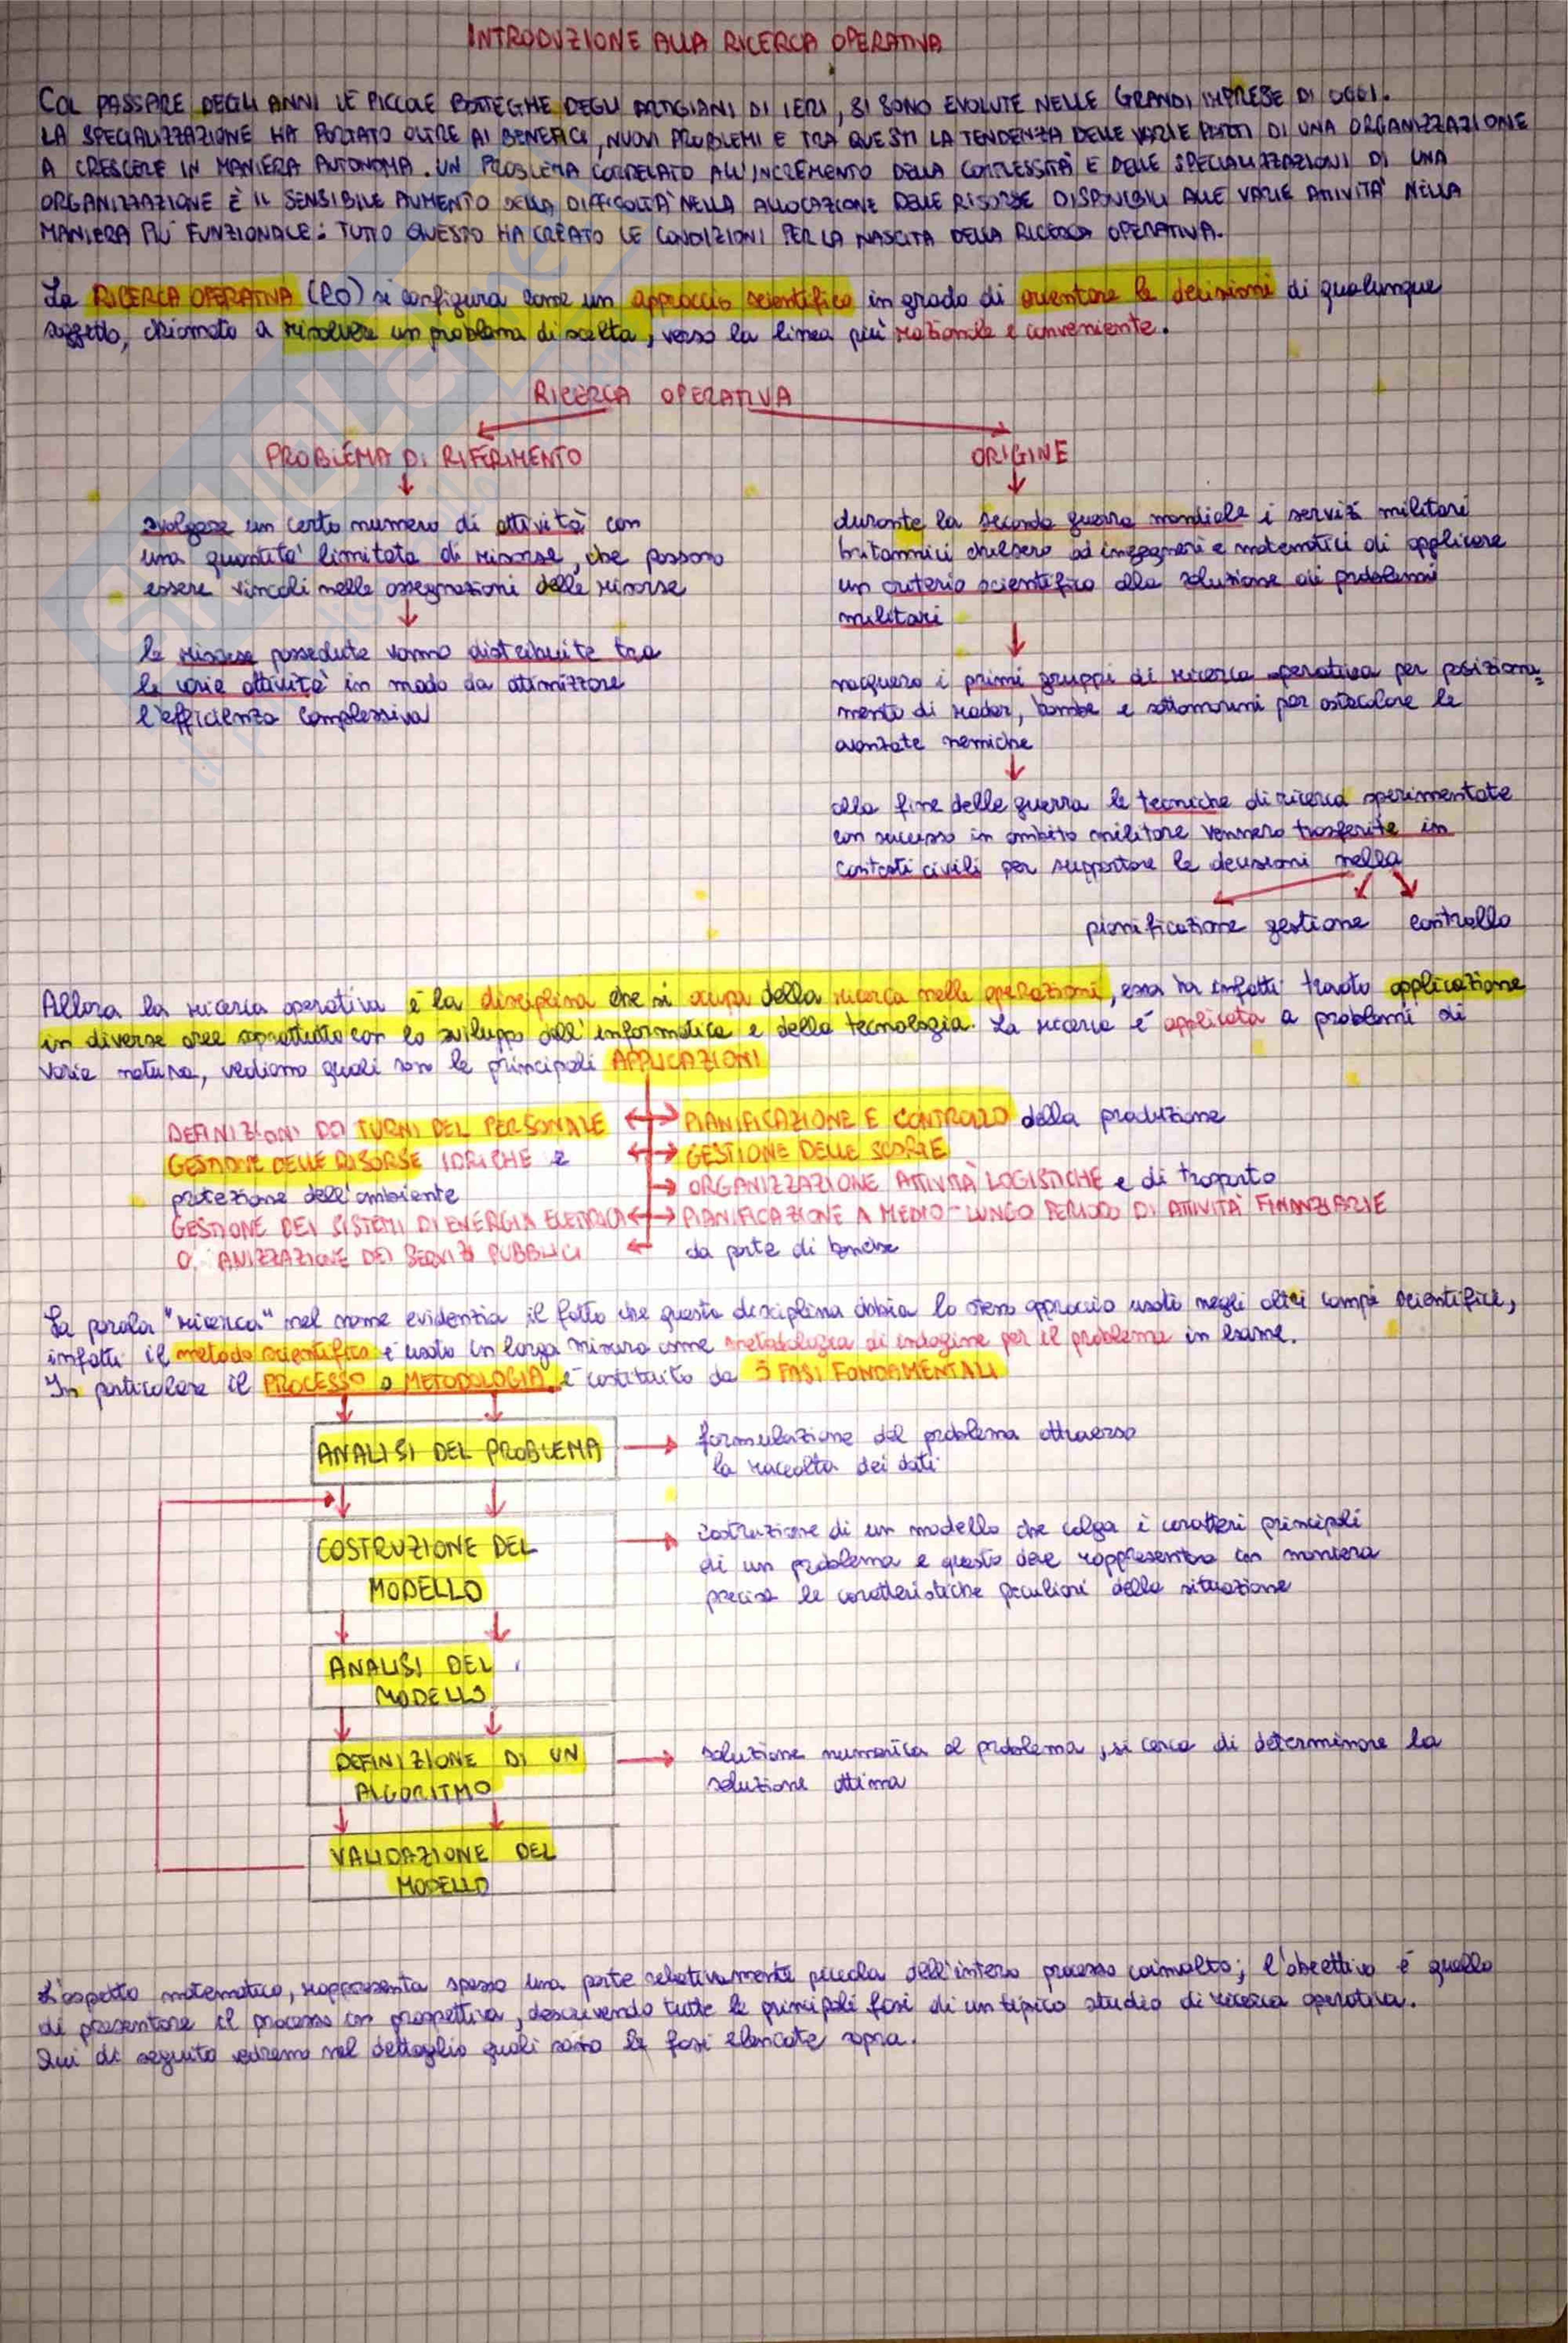 INTRODUZIONE ALLA RICERCA OPERATIVA
COL PASSARE DEGLI ANNI LE PICCOLE BOTTEGHE DEGLI ARTIGIANI DI IERI, SI SONO EVOLUTE NELLE GRANDI IMPRESE DI OGGI.
LA SPECIALIZZAZIONE HA PORTATO OLTRE AI BENEFICI, NUOVI PROBLEMI E TRA QUESTI LA TENDENZA DELLE VARIE PARTI DI UNA ORGANIZZAZIONE
A CRESCERE IN MANIERA AUTONOMA. UN PROBLEMA CORRELATO ALL'INCREMENTO DELLA COMPLESSITÀ E DELLE SPECIALIZZAZIONI DI UNA
ORGANIZZAZIONE È IL SENSIBILE AUMENTO DELLA DIFFICOLTÀ NELLA ALLOCAZIONE DELLE RISORSE DISPONIBILI ALLE VARIE ATTIVITÀ NELLA
MANIERA PIÙ FUNZIONALE: TUTTO QUESTO HA CREATO LE CONDIZIONI PER LA NASCITA DELLA RICERCA OPERATIVA.
La RICERCA OPERATIVA (RO) si configura come un approccio scientifico in grado di orientare le decisioni di qualunque
soggetto, chiamato a risolvere un problema di scelta, verso la linea più razionale e conveniente.
RICERCA OPERATIVA
PROBLEMA DI RIFERIMENTO
ORIGINE
svolgere un certo numero di attività con
una quantità limitata di risorse, che possono
essere vincoli nelle assegnazioni delle risorse
le risorse possedute vanno distribuite tra
le varie attività in modo da ottimizzare
l'efficienza complessiva
durante la seconda guerra mondiale i servizi militari
britannici chiesero ad ingegneri e matematici di applicare
un criterio scientifico alla soluzione di problemi
militari
nacquero i primi gruppi di ricerca operativa per posiziona-
mento di radar, bombe e sottomarini per ostacolare le
avanzate nemiche
alla fine della guerra le tecniche di ricerca sperimentate
con successo in ambito militare vennero trasferite in
contesti civili per supportare le decisioni nella
pianificazione gestione controllo
Allora la ricerca operativa è la disciplina che si occupa della ricerca nelle operazioni, essa ha infatti trovato applicazione
in diverse aree soprattutto con lo sviluppo dell'informatica e della tecnologia. La ricerca è applicata a problemi di
varia natura, vediamo quali son le principali APPLICAZIONI
DEFINIZIONI DEI TURNI DEL PERSONALE
PIANIFICAZIONE E CONTROLLO della produzione
GESTIONE DELLE RISORSE IDRICHE e
protezione dell'ambiente
GESTIONE DELLE SCORTE
ORGANIZZAZIONE ATTIVITÀ LOGISTICHE e di trasporto
GESTIONE DEI SISTEMI DI ENERGIA ELETTRICA
PIANIFICAZIONE A MEDIO-LUNGO PERIODO DI ATTIVITÀ FINANZIARIE
da parte di banche
O. ANIZZAZIONE DEI SERVIZI PUBBLICI
La parola "ricerca" nel nome evidenzia il fatto che questa disciplina abbia lo stesso approccio usati negli altri campi scientifici,
infatti il metodo scientifico è usato in larga misura come metodologia di indagine per il problema in esame.
In particolare il PROCESSO o METODOLOGIA è costituito da 5 FASI FONDAMENTALI
ANALISI DEL PROBLEMA
formulazione del problema attraverso
la raccolta dei dati
COSTRUZIONE DEL
MODELLO
costruzione di un modello che colga i caratteri principali
di un problema e questo deve rappresentare con maniera
precisa le caratteristiche peculiari della situazione
ANALISI DEL
MODELLO
DEFINIZIONE DI UN
ALGORITMO
soluzione numerica al problema, si cerca di determinare la
soluzione ottima
VALIDAZIONE DEL
MODELLO
L'aspetto matematico, rappresenta spesso una parte relativamente piccola dell'intero processo coinvolto; l'obiettivo è quello
di presentare il processo in prospettiva, descrivendo tutte le principali fasi di un tipico studio di ricerca operativa.
Qui di seguito vedremo nel dettaglio quali sono le fasi elencate sopra.